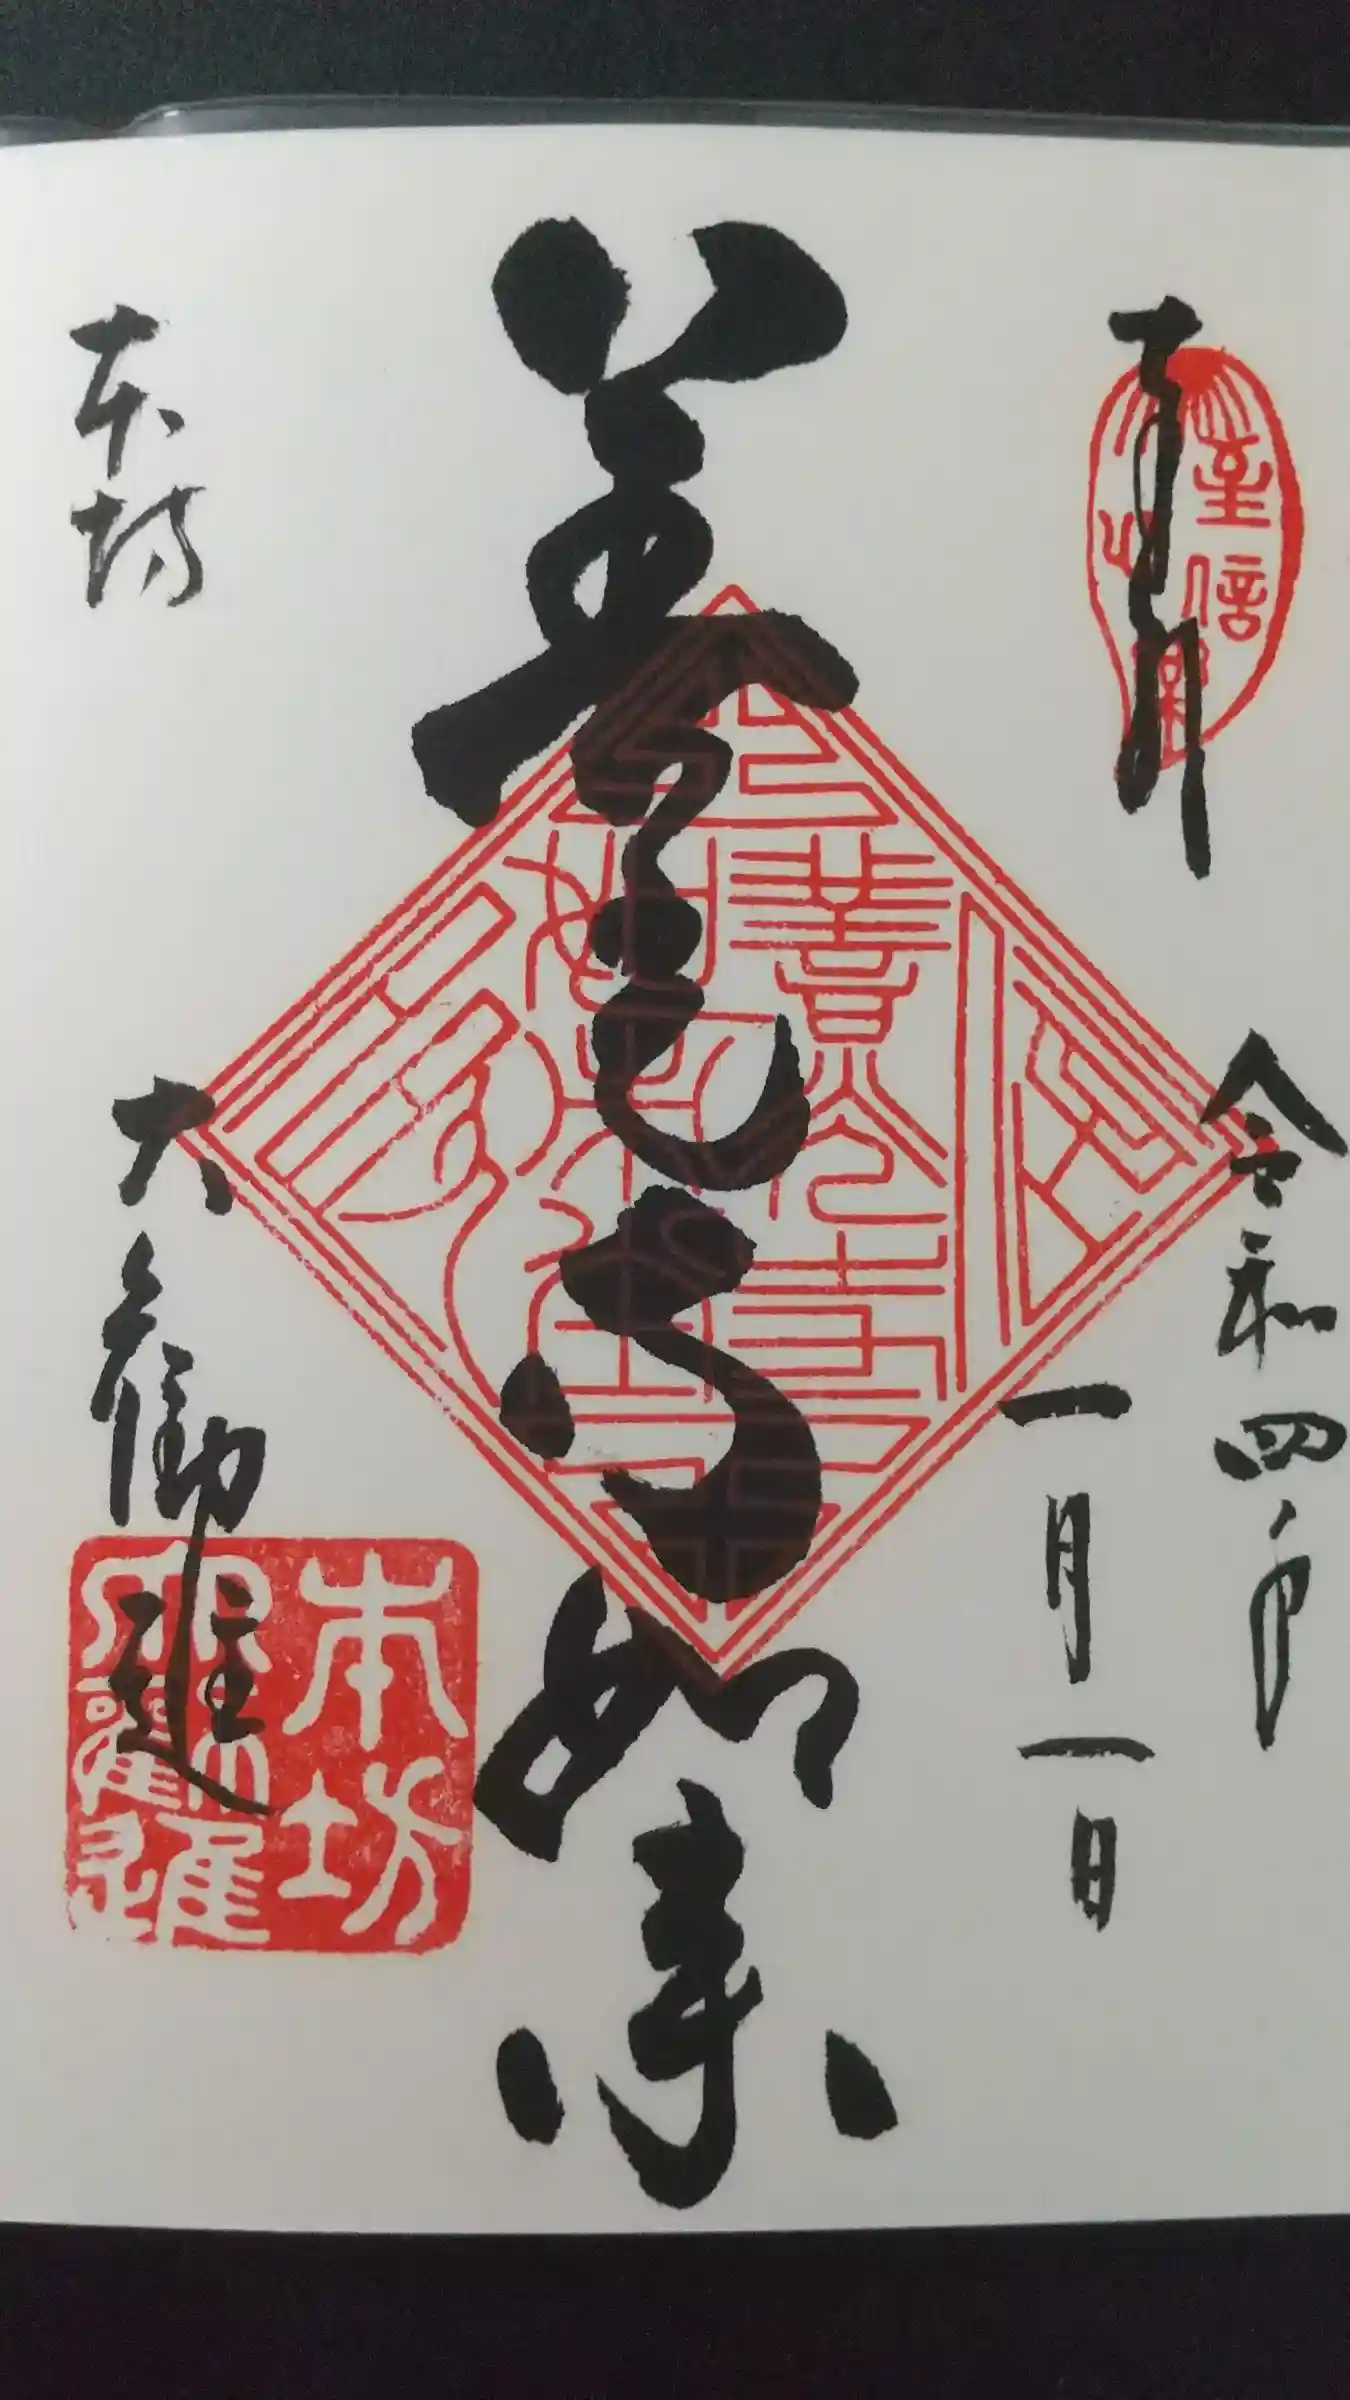 奉拝
令和四年
一月一日
善光寺如来
本坊
大勧進
善光寺
如来
本坊
大勧進